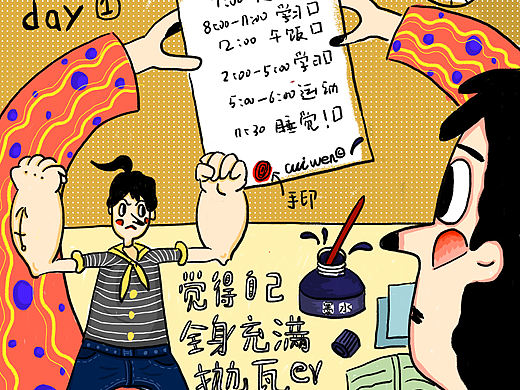 day ①
8:00-11:00 学习口
12:00 午饭口
2:00-5:00 学习口
5:00-6:00 运动
11:30 睡觉!口
cuiwen
手印
墨水
觉得自己
全身充满
抛瓦er